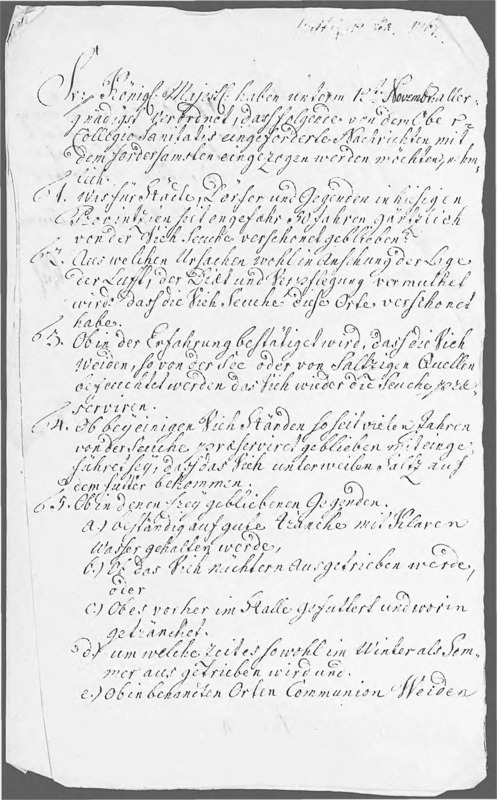 Sr: Königl: Majest: haben unterm 12ten Novembr aller-
gnädigst verordnet, dass folgende von dem Ober
Collegio Sanitatis eingeforderte Nachrichten mit
dem fordersamsten eingezogen werden möchten, nehm-
lich:
1. Was für Städte, Dörfer und Gegenden in hiesigen
Provintzien seit ongefähr 30 Jahren gäntzlich
von der Vieh Seuche verschonet geblieben?
2. Aus welchen Ursachen wohl in Ansehung der Lage
der Lufft, der Diæt und Verpflegung vermuthet
wird, dass die Vieh Seuche diese Orte verschonet
habe.
3. Ob in der Erfahrung bestätiget wird, dass die Vieh
Weiden, so von der See oder von Saltzigen Quellen
befeuchtet werden das Vieh wieder die Seuche præ-
serviren.
4. Ob bey einigen Vieh Ständen so seit vielen Jahren
von der Seuche præserviret geblieben mit einge-
führet sey, dass das Vieh unterweilen Saltz auf
dem futter bekommen.
5. Ob in denen frey gebliebenen Gegenden.
a.) beständig auf gute Tränche mit Klaren
Wasser gehalten werde,
b.) Ob das Vieh nüchtern ausgetrieben werde,
oder
c.) Ob es vorher im Stalle gefuttert und worin
getränchet.
d.) um welche Zeit es sowohl im Winter als Som-
mer aus getrieben wird und.
e.) Ob in benandten Orten Communion Weiden